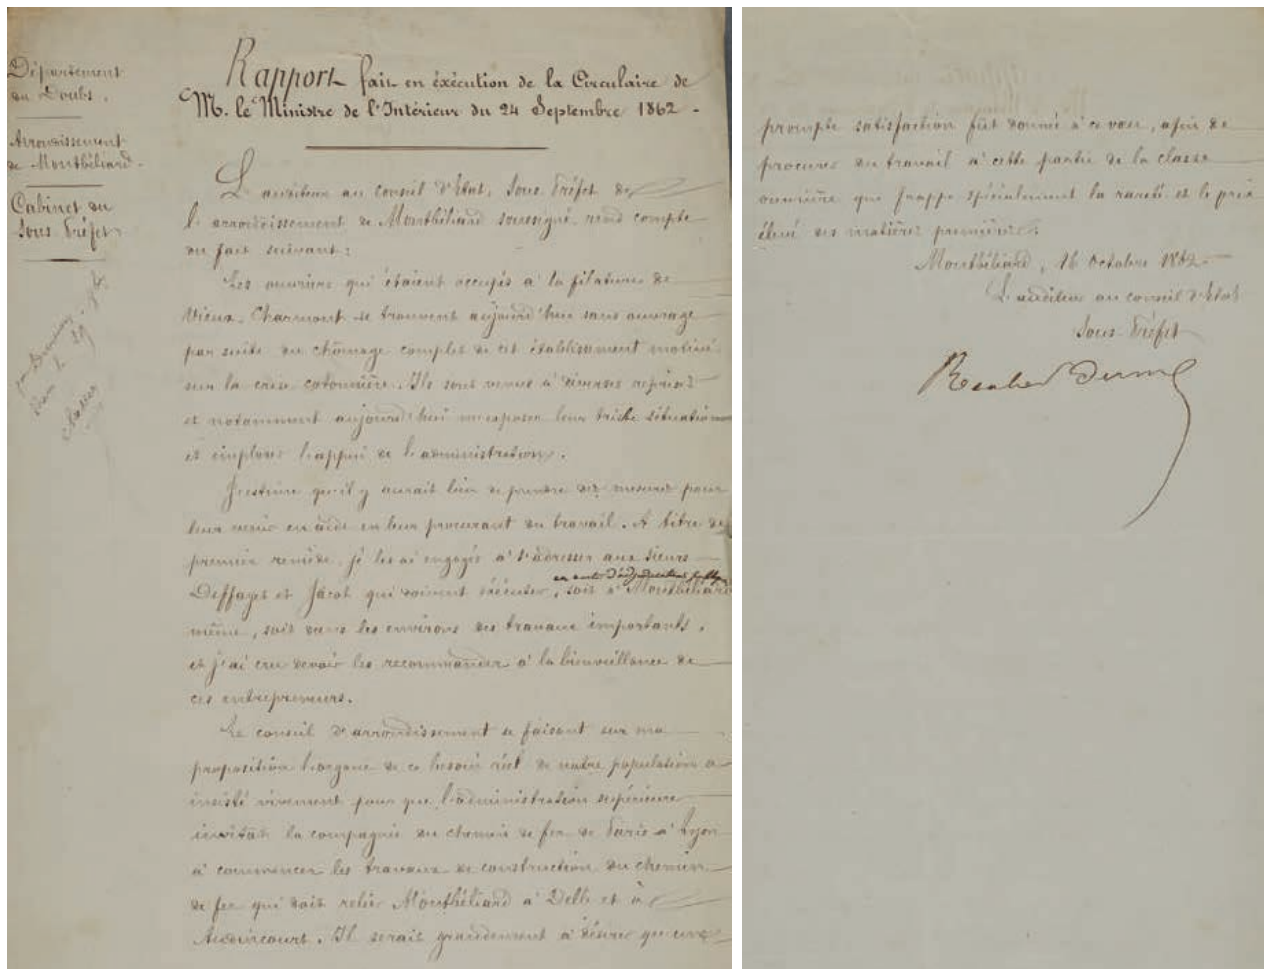 Département
du Doubs.
Arrondissement
de Montbéliard.
Cabinet du
Sous-Préfet
Rapport fait en éxécution de la Circulaire de
M. le Ministre de l'Intérieur du 24 Septembre 1862 -
L'auditeur au conseil d'Etat, Sous-Préfet de
l'arrondissement de Montbéliard soussigné, rend compte
du fait suivant :
Les ouvriers qui étaient occupés à la filature de
Vieux-Charmont se trouvent aujourd'hui sans ouvrage
par suite du chômage complet de cet établissement motivé
sur la crise cotonnière. Ils sont venus à diverses reprises
et notamment aujourd'hui m'exposer leur triste situation
et implorer l'appui de l'administration.
J'estime qu'il y aurait lieu de prendre des mesures pour
leur venir en aide en leur procurant du travail. A titre de
premier remède, je les ai engagés à s'adresser aux sieurs
en suite d'adjudications
Deffayet et Jacot qui doivent éxécuter, soit à Montbéliard
même, soit dans les environs des travaux importants,
et j'ai cru devoir les recommander à la bienveillance de
ces entrepreneurs.
Le conseil d'arrondissement se faisant sur ma
proposition l'organe de ce besoin réel de notre population a
insisté vivement pour que l'administration supérieure
invitât la compagnie du chemin de fer de Paris à Lyon
à commencer les travaux de construction du chemin
de fer qui doit relier Montbéliard à Delle et à
Audincourt. Il serait grandement à désirer qu'une
prompte satisfaction fût donnée à ce vœu, afin de
procurer du travail à cette partie de la classe
ouvrière que frappe spécialement la rareté et le prix
élevé des matières premières.
Montbéliard, 16 Octobre 1862
L'auditeur au conseil d'Etat
Sous-Préfet